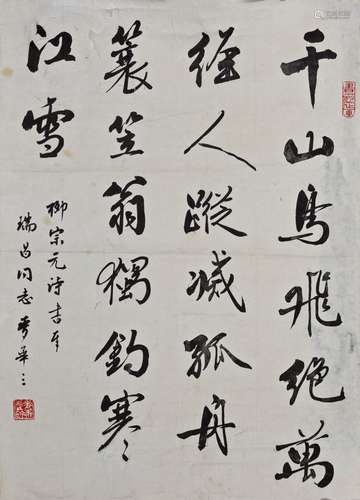 千山鳥飛絕萬
徑人蹤滅孤舟
簑笠翁獨釣寒
江雪
柳宗元詩
瑞昌同志